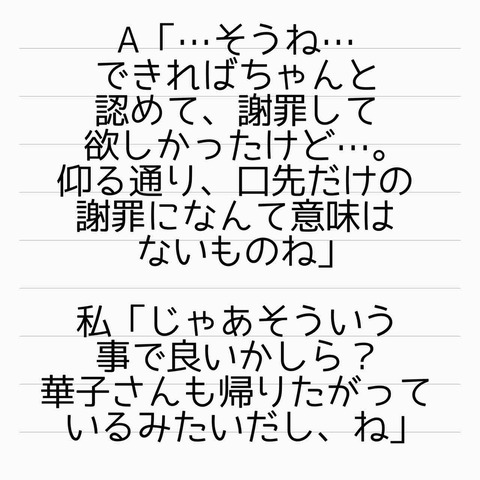 A「…そうね…
できればちゃんと
認めて、謝罪して
欲しかったけど…。
仰る通り、口先だけの
謝罪になんて意味は
ないものね」
私「じゃあそういう
事で良いかしら？
華子さんも帰りたがって
いるみたいだし、ね」